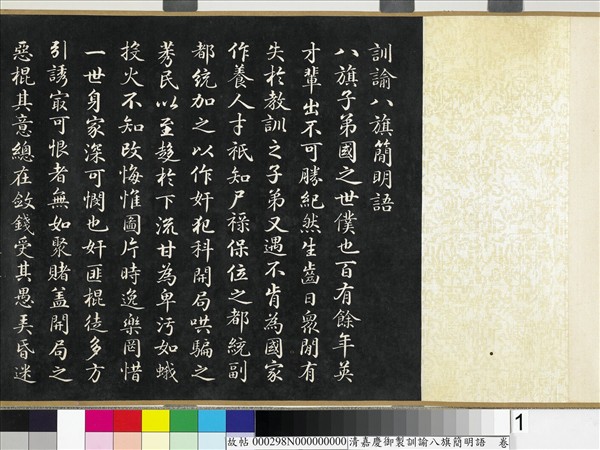 訓諭八旗簡明語
八旗子弟國之世僕也百有餘年英
才輩出不可勝紀然生齒日眾閒有
失於教訓之子弟又遇不肯為國家
作養人才祇知尸祿保位之都統副
都統加之以作奸犯科開局哄騙之
莠民以至趍於下流甘為卑汚如蛾
投火不知改悔惟圖片時逸樂罔惜
一世身家深可憫也奸匪棍徒多方
引誘冣可恨者無如聚賭盖開局之
惡棍其意總在斂錢受其愚弄昏迷
1
故帖 000298N000000000 清嘉慶御製訓諭八旗簡明語 卷